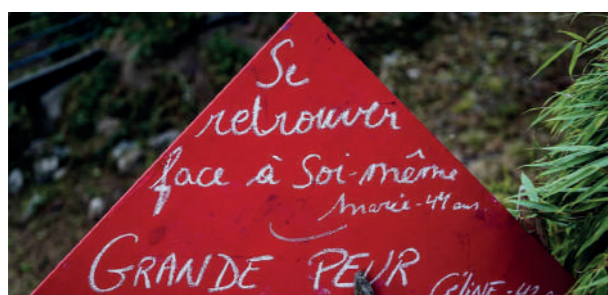 Se
retrouver
face à Soi-même
Marie-44 ans
GRANDE PEUR
CÉLINE-42